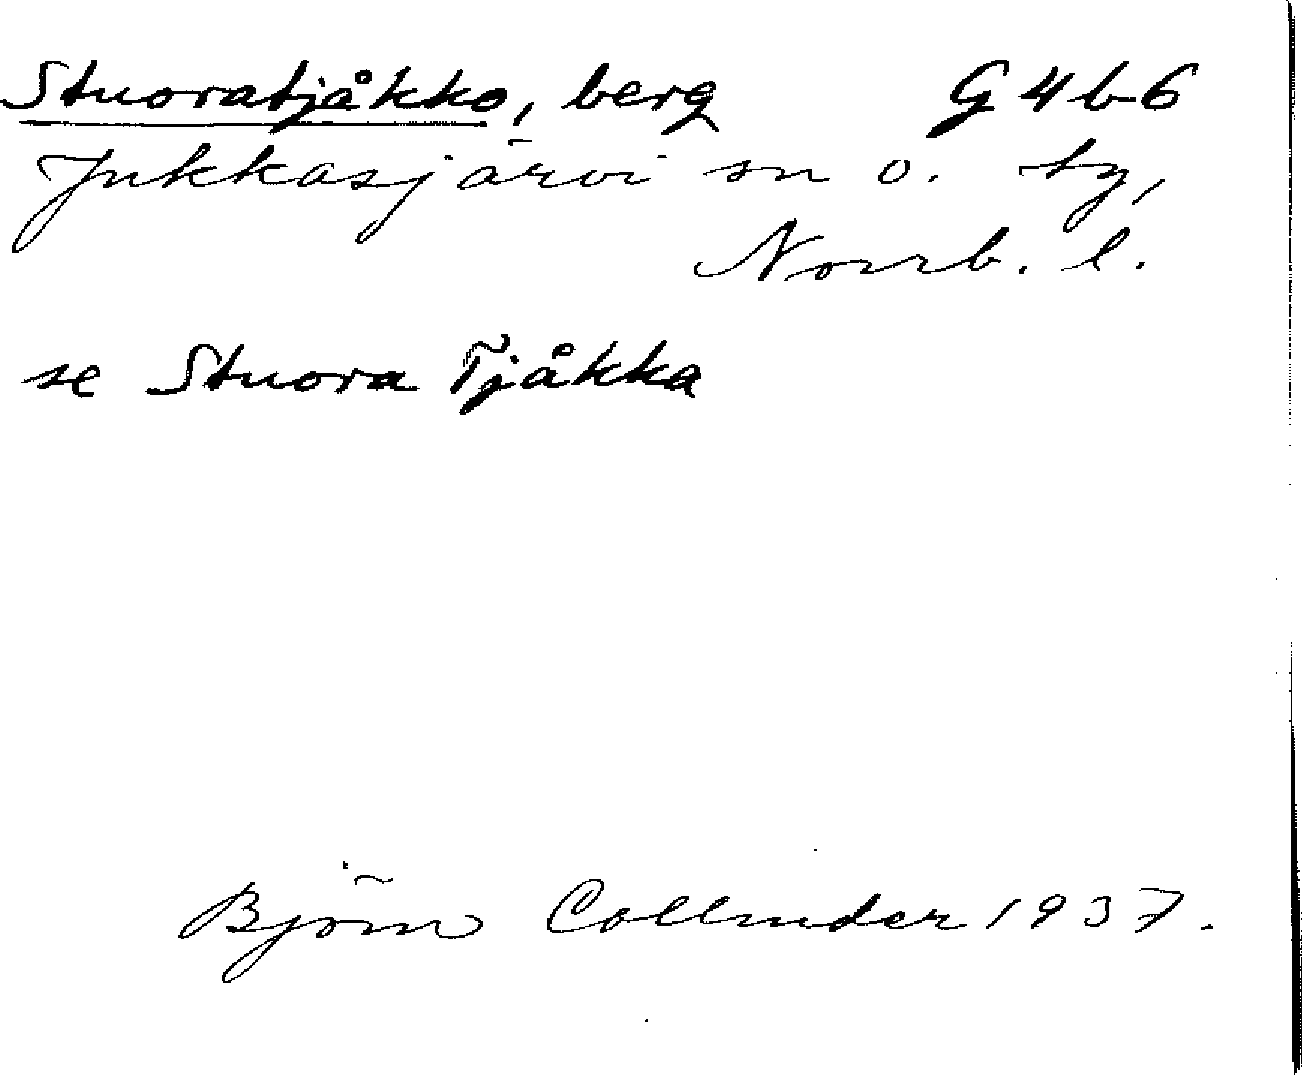 Stuoratjåkko, berg G4b6
Jukkasjärvi sn o. tg,
Norrb. l.
se Stuora Tjåkka
Björn Collinder 1937.